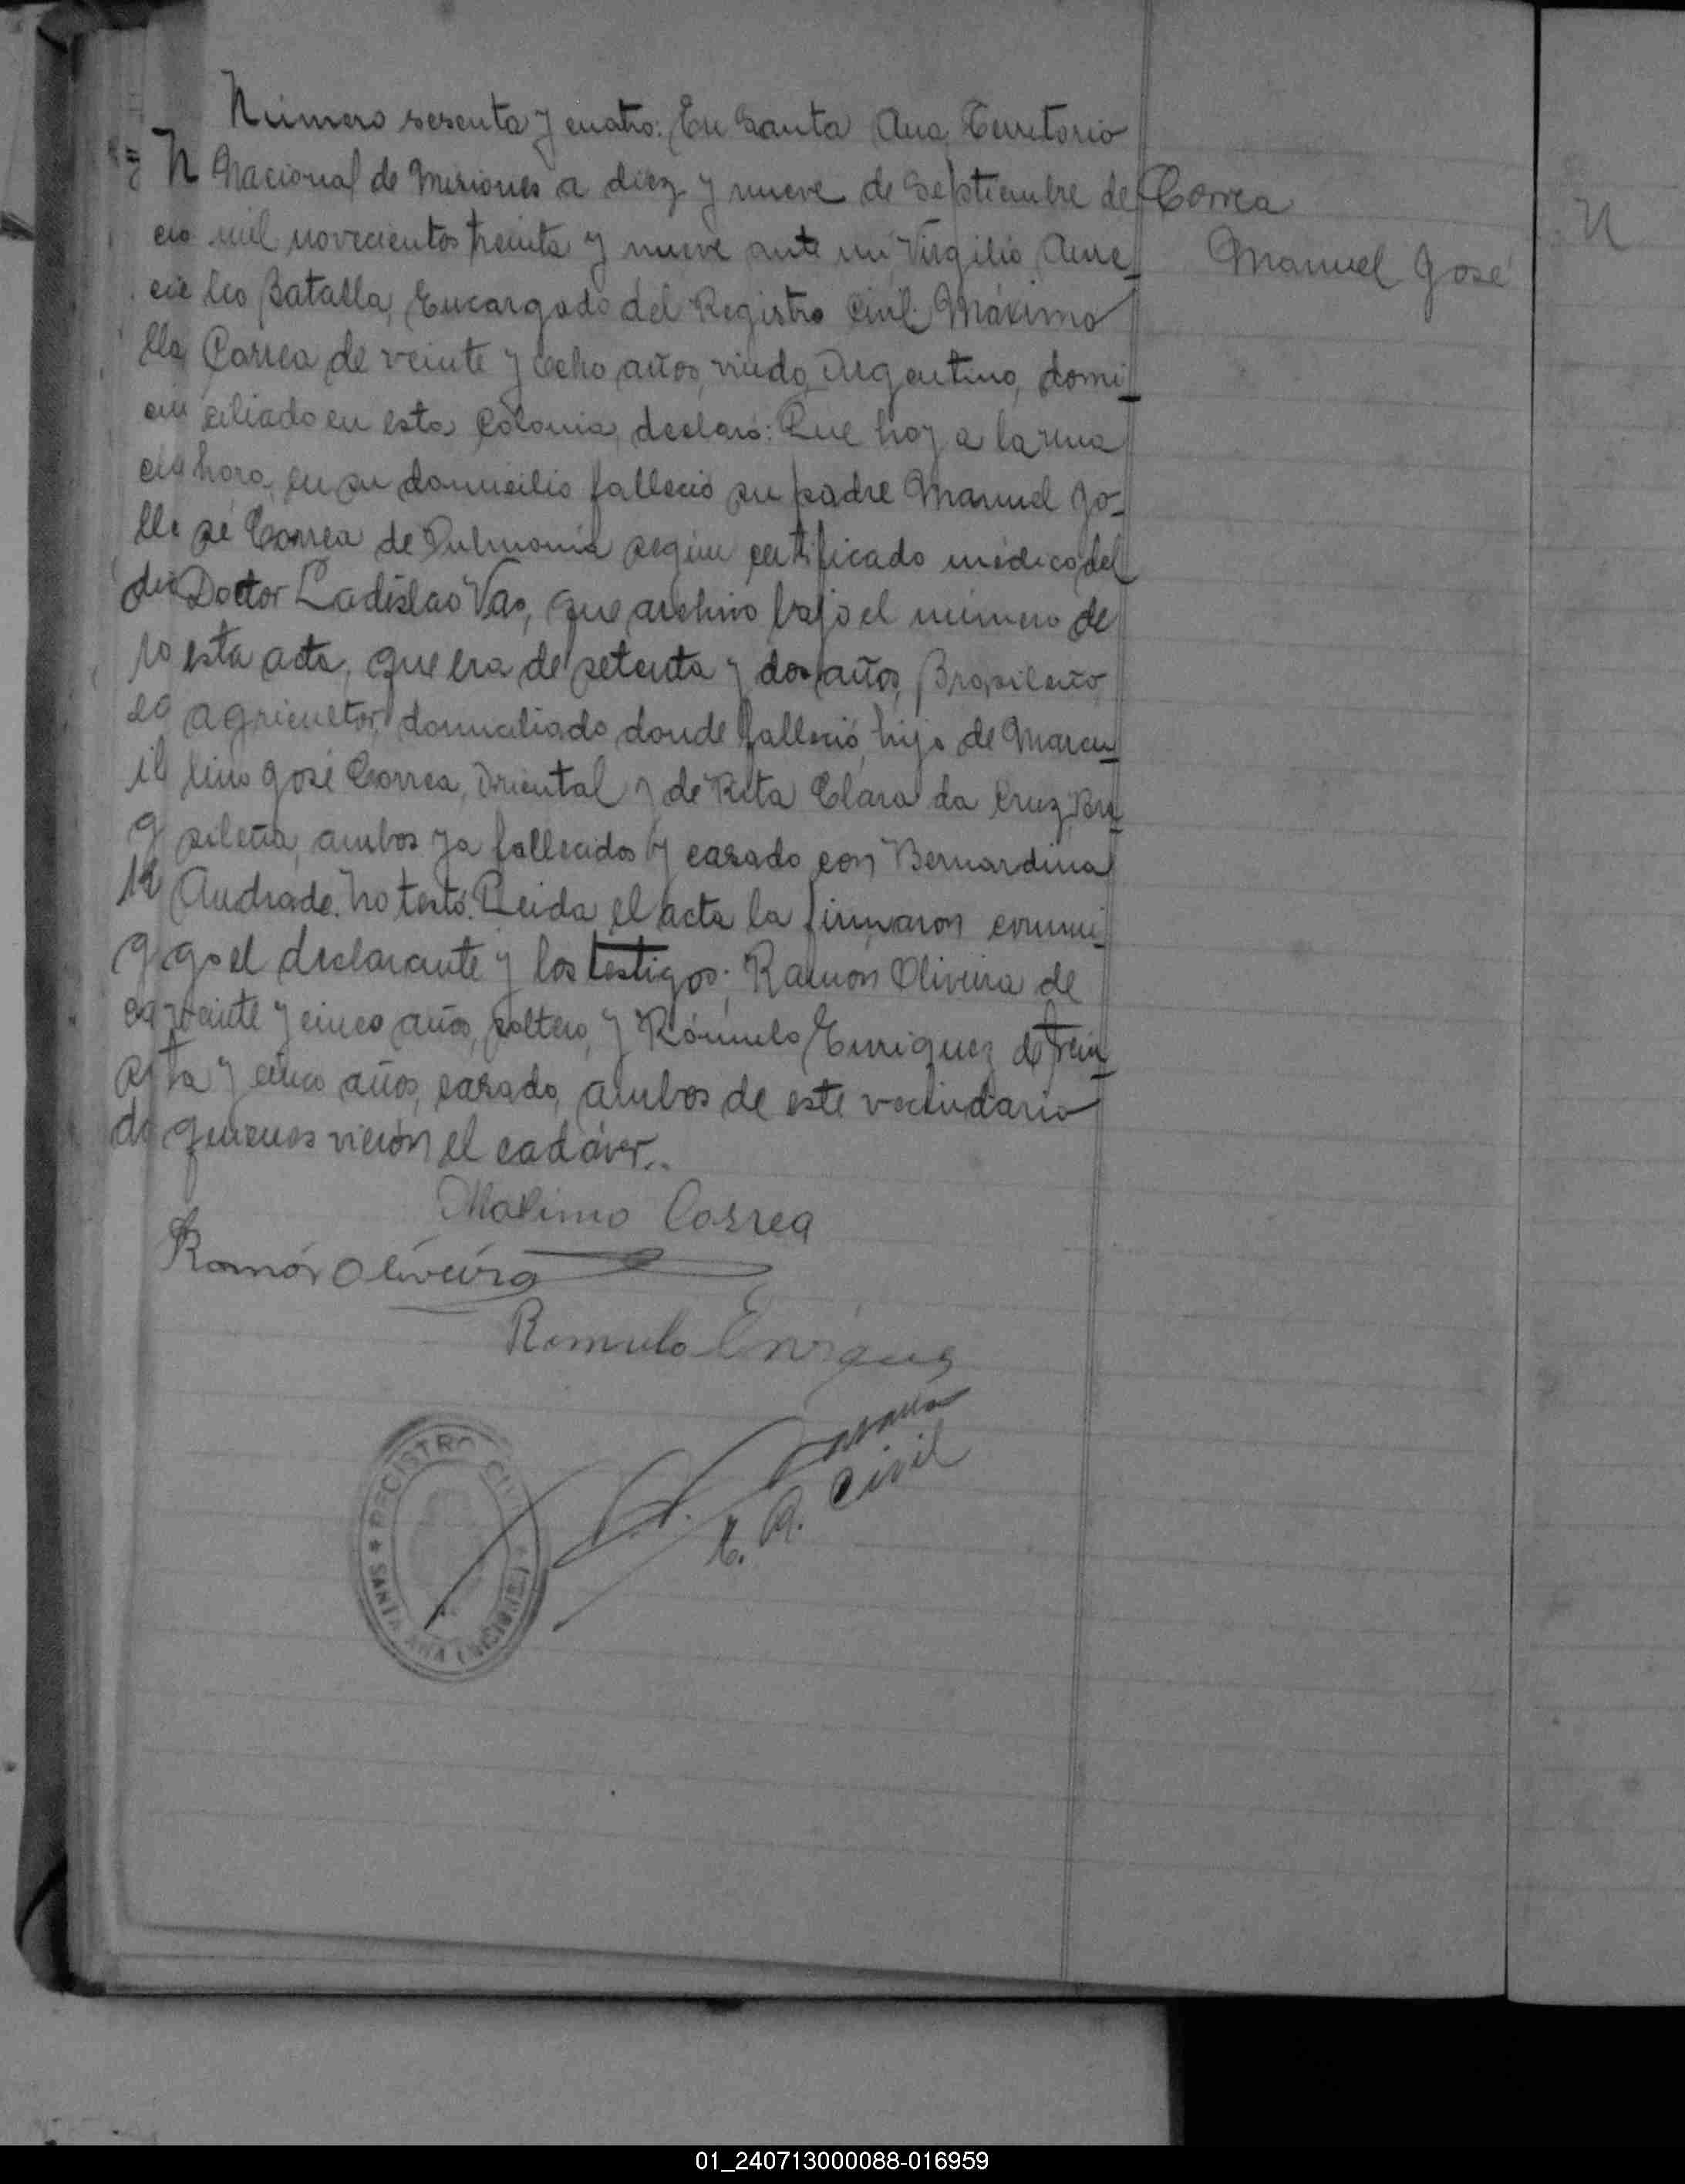 Número sesenta y cuatro: En Santa Ana Territorio
Nacional de Misiones a diez y nueve de Septiembre de
mil novecientos treinta y nueve ante mi Virgilio
Batalla, Encargado del Registro Civil Máximo
Correa de veinte y ocho años, viudo, Argentino, domi-
ciliado en esta Colonia, declaró: Que hoy a la una
hora, en su domicilio falleció su padre Manuel Jo-
sé Correa de Pulmonía según certificado médico del
Doctor Ladislao, que archivo bajo el número de
esta acta, que era de setenta y dos años, Brasileño,
agricultor, domiciliado donde falleció, hijo de Marcu-
lino José Correa, Oriental y de Rita Clara da Cruz, Bra-
sileña, ambos ya fallecidos y casado con Bernardina
Andrade. No testó. Leida el acta la firmaron conmi-
go el declarante y los testigos: Ramon Oliveira de
veinte y cinco años, soltero, y Rómulo Enriquez de trein-
ta y cinco años, casado, ambos de este vecindario
quienes vieron el cadáver..
Correa
Manuel José
N
Maximo Correa
Ramón Oliveira
Romulo Enriquez
E. R. Civil
REGISTRO CIVIL
SANTA ANA (MISIONES)
01_240713000088-016959